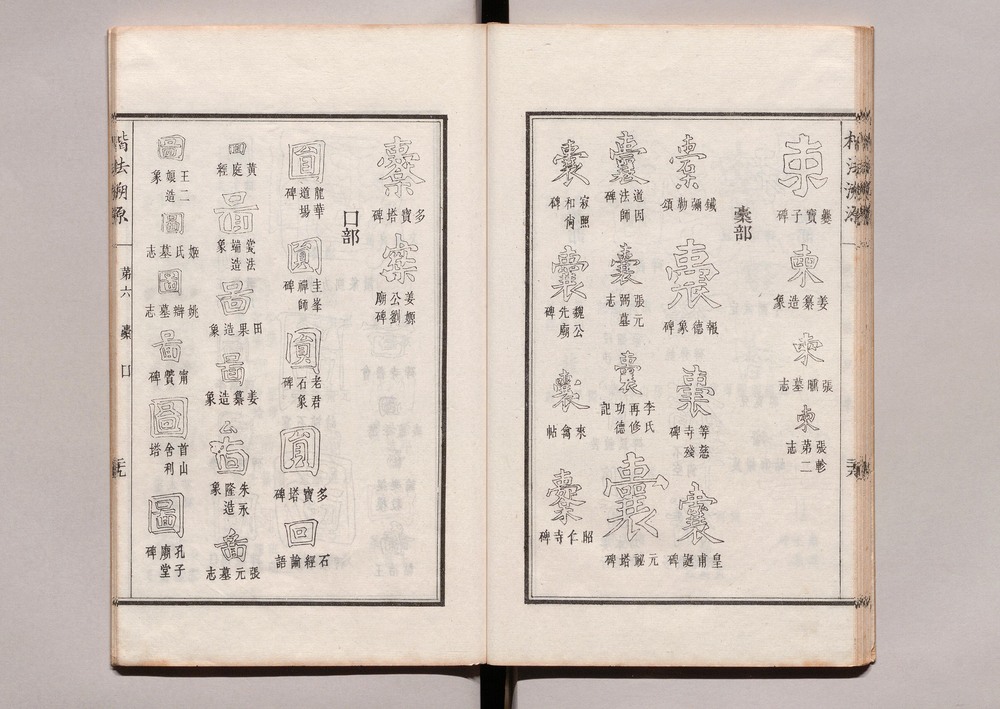 柬 爨寶子碑 柬 姜纂造象 柬 張墓志 柬 張軫第二志
㯻部
橐 鐵彌勒頌 囊 報德象碑 囊 等慈寺殘碑 囊 皇甫誕碑
囊 道因法師 囊 張元弼墓志 囊 李氏再修功德記 囊 元塔碑
囊 寂照和尚碑 囊 魏公先廟碑 囊 來禽帖 櫜 昭仁寺碑
橐 多寶塔碑 橐 姜嫄公劉廟碑
口部
圓 龍華道場碑 圓 圭峯禪師碑 圓 老君石象碑 圓 多寶塔碑 回 石經論語
圖 黃庭經 圖 法端造象 圖 田果造象 圖 姜纂造象 圖 朱永隆造象 圖 張元墓志
圖 王二娘造象 圖 姬氏墓志 圖 姚辯墓志 圖 甯贙碑 圖 首山舍利塔 圖 孔子廟堂碑
楷法溯源 第六 㯻 口